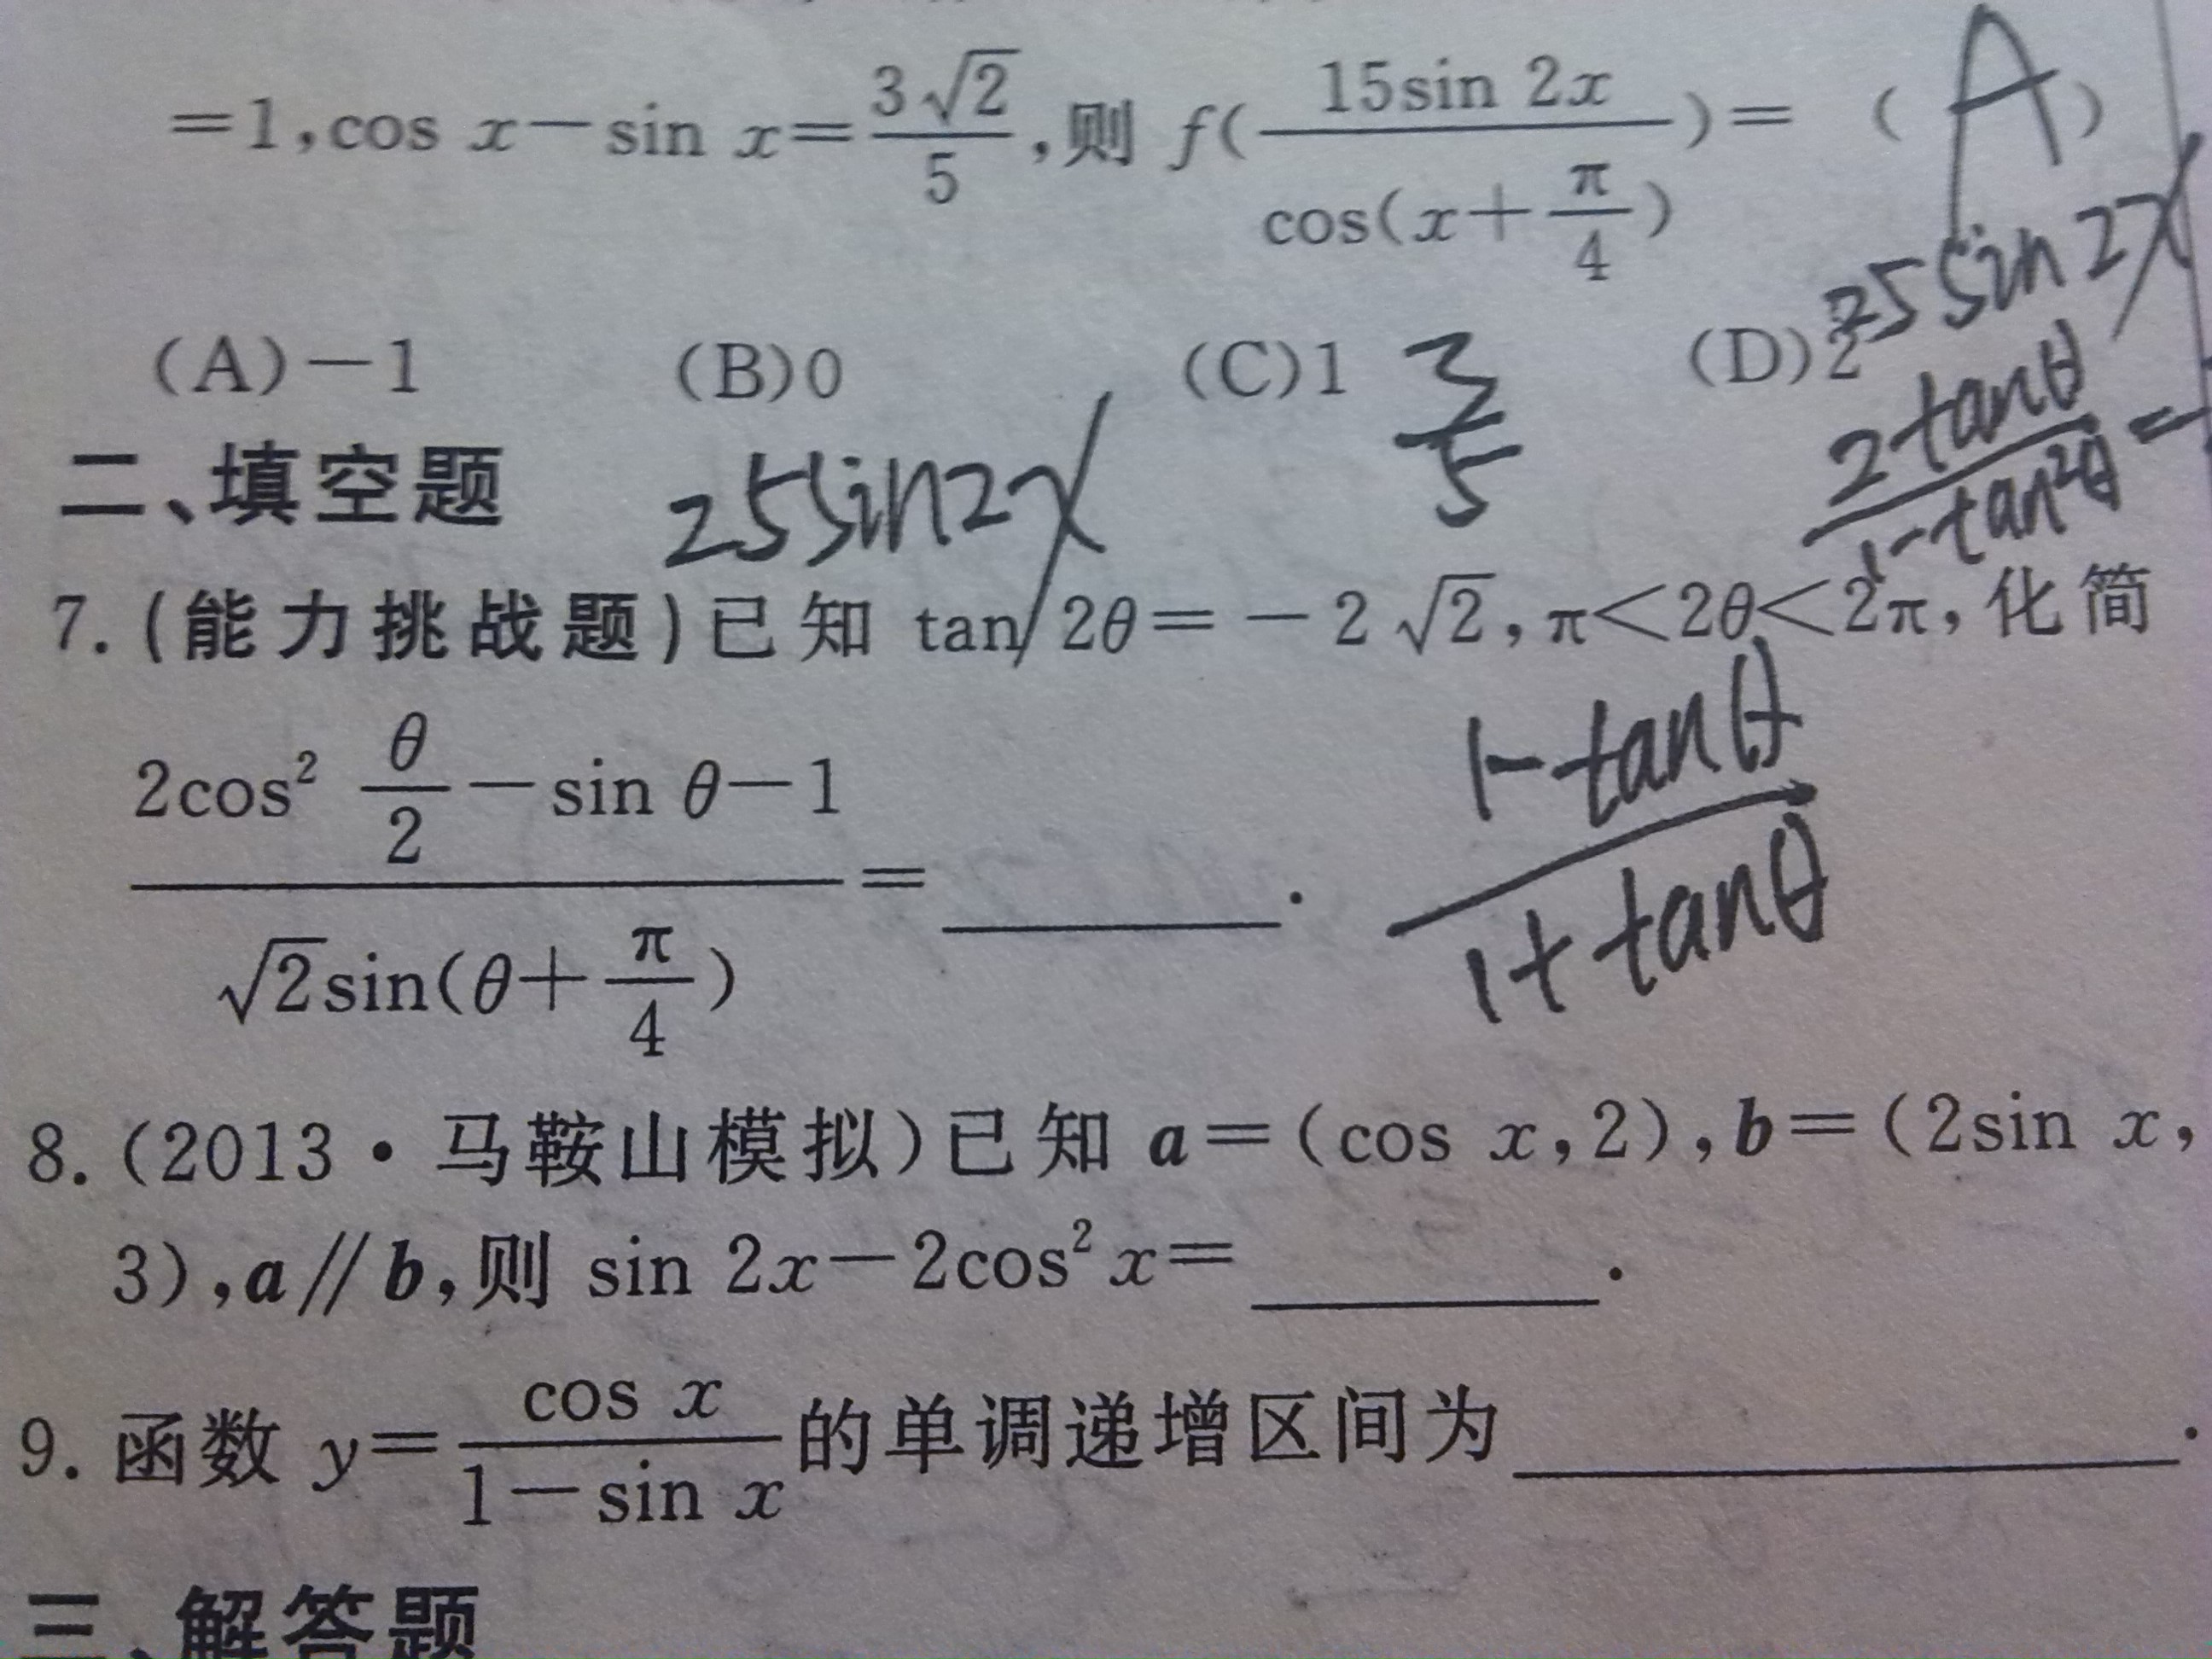 =1,cos x−sin x=3√2/5,则 f(15sin 2x/cos(x+π/4))= ( A )
25sin2x
(A)−1 (B)0 (C)1 (D)2
3/5
2tanθ/1-tan²θ =
二、填空题
25sin2x
7.(能力挑战题)已知 tan 2θ=−2√2,π<2θ<2π,化简
2cos² θ/2−sin θ−1/√2sin(θ+π/4)=______.
1-tanθ/1+tanθ
8.(2013·马鞍山模拟)已知 a=(cos x,2),b=(2sin x,
3),a∥b,则 sin 2x−2cos² x=______.
9.函数 y=cos x/1−sin x的单调递增区间为______.
三、解答题